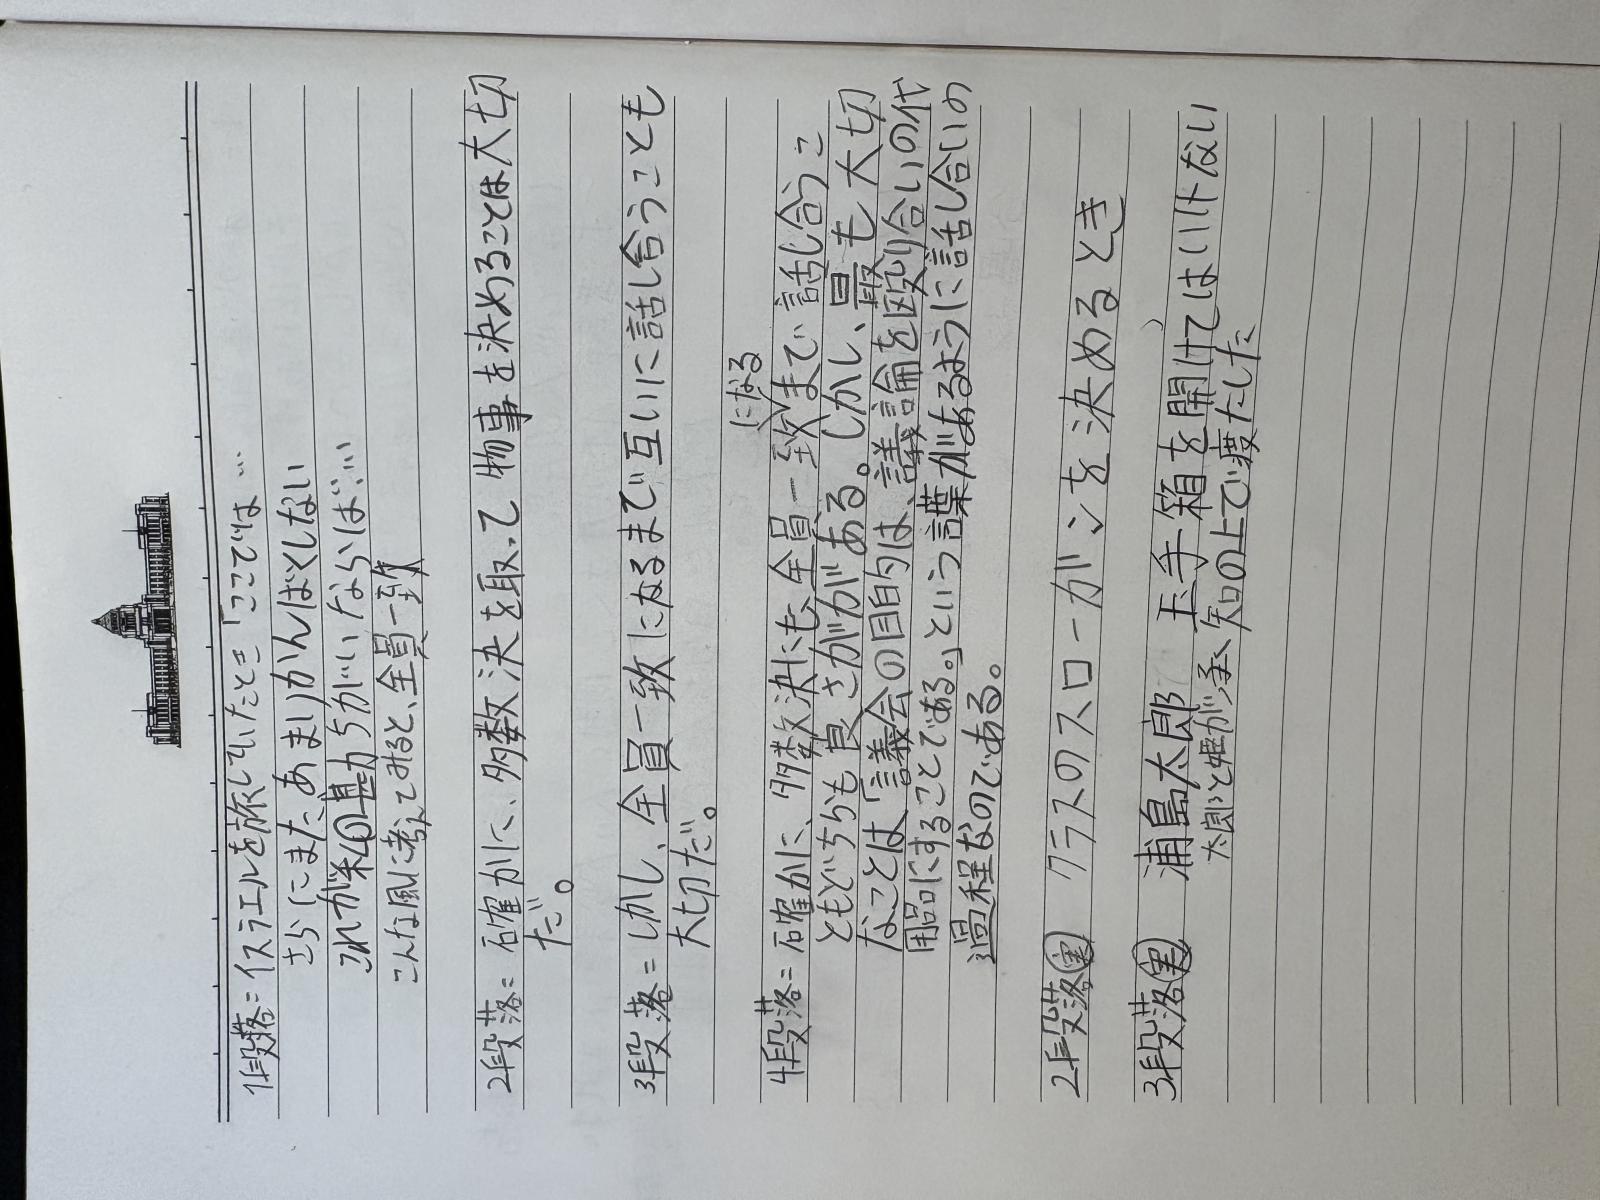 1段落=イスラエルを旅していたとき「ここでは…
さらにまたあまりかんばしくしない
これが私の勘ちがいならば…
こんな風に考えてみると、全員一致
2段落=確かに、多数決を取って物事を決めることは大切
だ。
3段落=しかし、全員一致になるまで互いに話し合うことも
大切だ。
になる
4段落=確かに、多数決にも、全員一致まで話し合うこ
ともどちらも良さがある。しかし、最も大切
なことは「議会の目的は、議論を殴り合いの代
用品にすることである。」という言葉があるように話し合いの
過程なのである。
2段落実 クラスのスローガンを決めるとき
3段落実 浦島太郎 玉手箱を開けてはいけない
太郎と姫が承知の上で渡たした